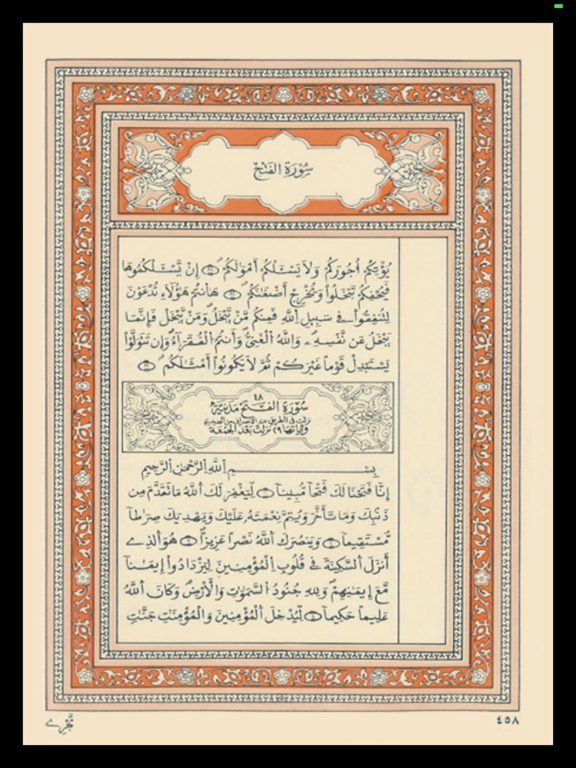 سُورَةُ الفَتْحِ
يُؤْتِكُمُ أُجُورَكُمْ وَلَا يَسْـَٔلْكُمُ أَمْوَٰلَكُمُ ۝ إِنْ يَّسْـَٔلْكُمُوهَا
فَيُحْفِكُمْ تَبْخَلُواْ وَيُخْرِجَ اَضْغَٰنَكُمْ ۝ هَآنتُمْ هَٰٓؤُلَآءِ تُدْعَوْنَ
لِتُنفِقُواْ فِى سَبِيلِ اِللَّهِ فَمِنكُم مَّنْ يَّبْخَلُ وَمَنْ يَّبْخَلْ فَإِنَّمَا
يَبْخَلُ عَن نَّفْسِهِۦ وَاللَّهُ اُلْغَنِىُّ وَأَنتُمُ اُلْفُقَرَآءُ وَإِن تَتَوَلَّوْاْ
يَسْتَبْدِلْ قَوْماً غَيْرَكُمْ ثُمَّ لَا يَكُونُواْ أَمْثَٰلَكُم ۝
٤٨
سُورَةُ الفَتْحِ مَدَنِيَّة
نزلت في الطريق عند الانصراف من الحديبية
وءاياتها ٢٩ نزلت بعد الجمعة
بِسْمِ اِللَّهِ اِلرَّحْمَٰنِ اِلرَّحِيمِ
إِنَّا فَتَحْنَا لَكَ فَتْحاً مُّبِيناً ۝ لِّيَغْفِرَ لَكَ اَللَّهُ مَا تَقَدَّمَ مِن
ذَنۢبِكَ وَمَا تَأَخَّرَ وَيُتِمَّ نِعْمَتَهُۥ عَلَيْكَ وَيَهْدِيَكَ صِرَٰطاً
مُّسْتَقِيماً ۝ وَيَنصُرَكَ اَللَّهُ نَصْراً عَزِيزاً ۝ هُوَ اَلذِے
أَنزَلَ اَلسَّكِينَةَ فِى قُلُوبِ اِلْمُؤْمِنِينَ لِيَزْدَادُواْ إِيمَٰناً
مَّعَ إِيمَٰنِهِمْ وَلِلهِ جُنُودُ اُلسَّمَٰوَٰتِ وَالْأَرْضِ وَكَانَ اَللَّهُ
عَلِيماً حَكِيماً ۝ لِّيُدْخِلَ اَلْمُؤْمِنِينَ وَالْمُؤْمِنَٰتِ جَنَّٰتٍ
تَجْرِے
٤٥٨